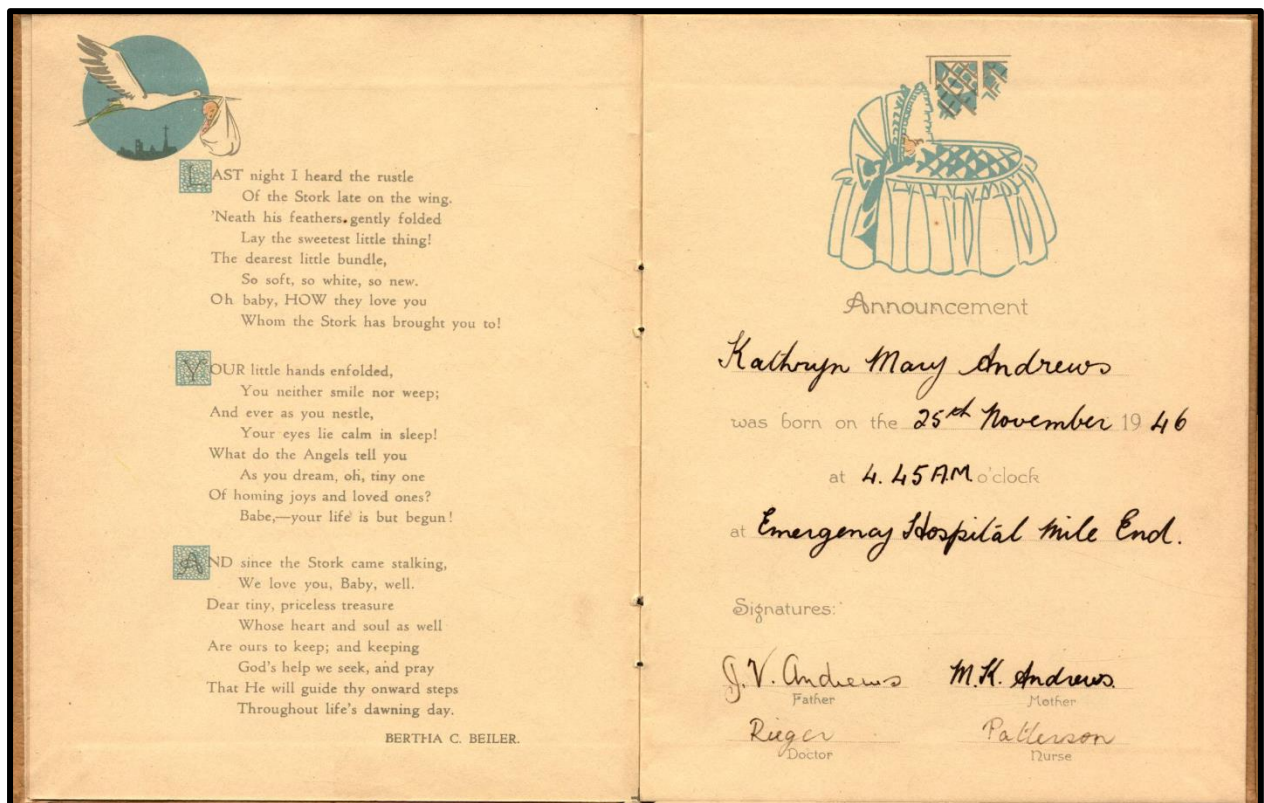 LAST night I heard the rustle
Of the Stork late on the wing.
'Neath his feathers gently folded
Lay the sweetest little thing!
The dearest little bundle,
So soft, so white, so new.
Oh baby, HOW they love you
Whom the Stork has brought you to!
YOUR little hands enfolded,
You neither smile nor weep;
And ever as you nestle,
Your eyes lie calm in sleep!
What do the Angels tell you
As you dream, oh, tiny one
Of homing joys and loved ones?
Babe,—your life is but begun!
AND since the Stork came stalking,
We love you, Baby, well.
Dear tiny, priceless treasure
Whose heart and soul as well
Are ours to keep; and keeping
God's help we seek, and pray
That He will guide thy onward steps
Throughout life's dawning day.
BERTHA C. BEILER.
Announcement
Kathryn Mary Andrews
was born on the 25th November 1946
at 4.45 AM o'clock
at Emergency Hospital Mile End.
Signatures:
J. V. Andrews M.K. Andrews.
Father Mother
Rieger Patterson
Doctor Nurse